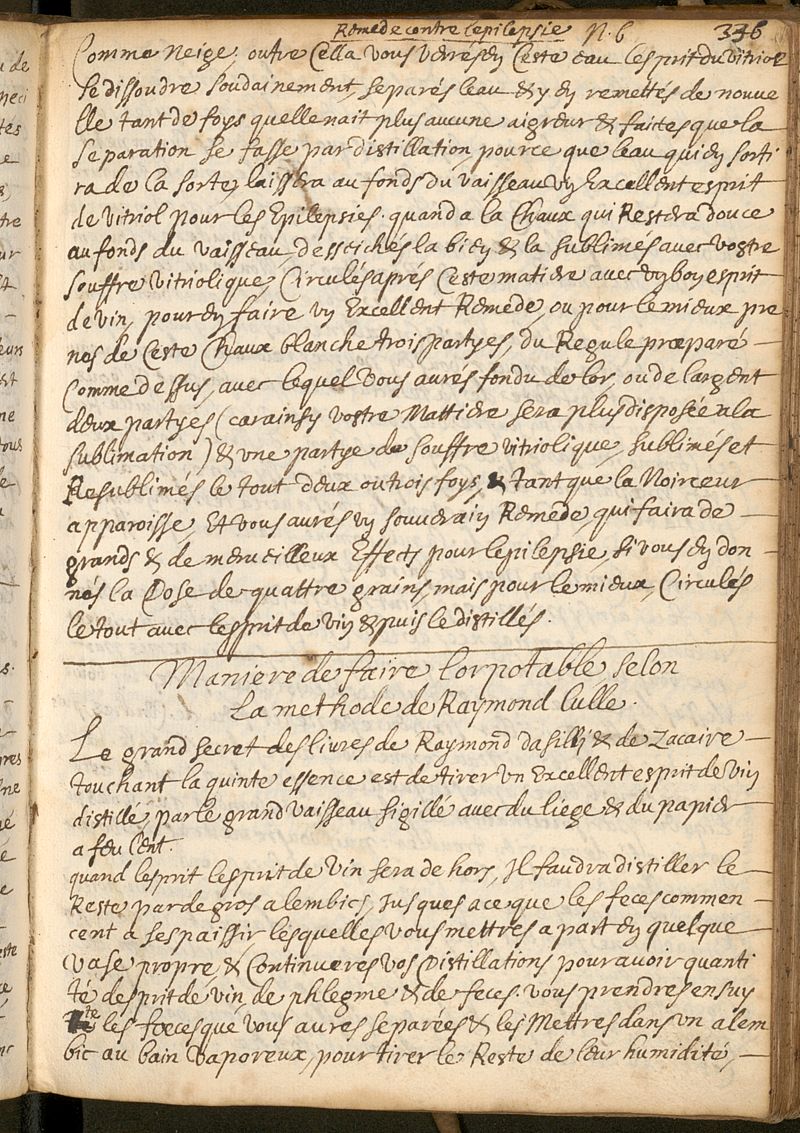 Remede contre lepilepsie N. 6 336
Comme neige, outre Cella vous verrés en Ceste eau lesprit du vitriol
se dissoudre soudainement, separés leau & y en remettés de nouve
lle tant de foys quelle nait plus aucune aigreur & faites que la
separation se fasse par distillation, pource que leau qui en sorti
ra de la sorte, laissera au fonds du vaisseau un Excellent esprit
de vitriol pour les Epilepsies. quand a la Chaux qui Restera douce
au fonds du vaisseau, desseichés la bien & la sublimés avec vostre
souffre vitriolique, Circulés apres Ceste matiere avec un bon esprit
de vin, pour en faire un Excellent Remede, ou pour le mieux pre
nés de Ceste Chaux blanche trois partyes, du Regule præparé –
Comme dessus, avec lequel vous aurés fondu de lor, ou de largent
deux partyes (car ainsy vostre Mattiere sera plus disposée a la
sublimation) & une partye du souffre vitriolique, sublimés et
Resublimés le tout deux ou trois foys, & tant que la Noirceur
apparoisse, Et vous aurés un souverain Remede, qui faira de –
grands & de merveilleux Effects pour lepilepsie, si vous en don –
nés la Dose de quattre grains, mais pour le mieux, Circulés
le tout avec lesprit de vin & puis le distillés.
Maniere de faire lor potable selon
La methode de Raymond Lulle.
Le grand secret des livres de Raymond dasilly & de Zacaire –
touchant la quinte essence est de tirer un Excellent esprit de vin
distillé par le grand vaisseau sigillé avec du liege & du papier
a feu lent.
quand lesprit lesprit de vin sera dehors, Il faudra distiller le
Reste par de gros alembics, Jusques a ce que les feces commen –
cent a sespaissir, lesquelles vous mettres a part en quelque
vase propre, & Continueres vos Distillations pour avoir quanti
té desprit de vin, de phlegme & de feces. vous prendres ensuy
te les fœces que vous aures separées & les Mettres dans un alem
bic au bain vaporeux, pour tirer le Reste de leur humidité, –